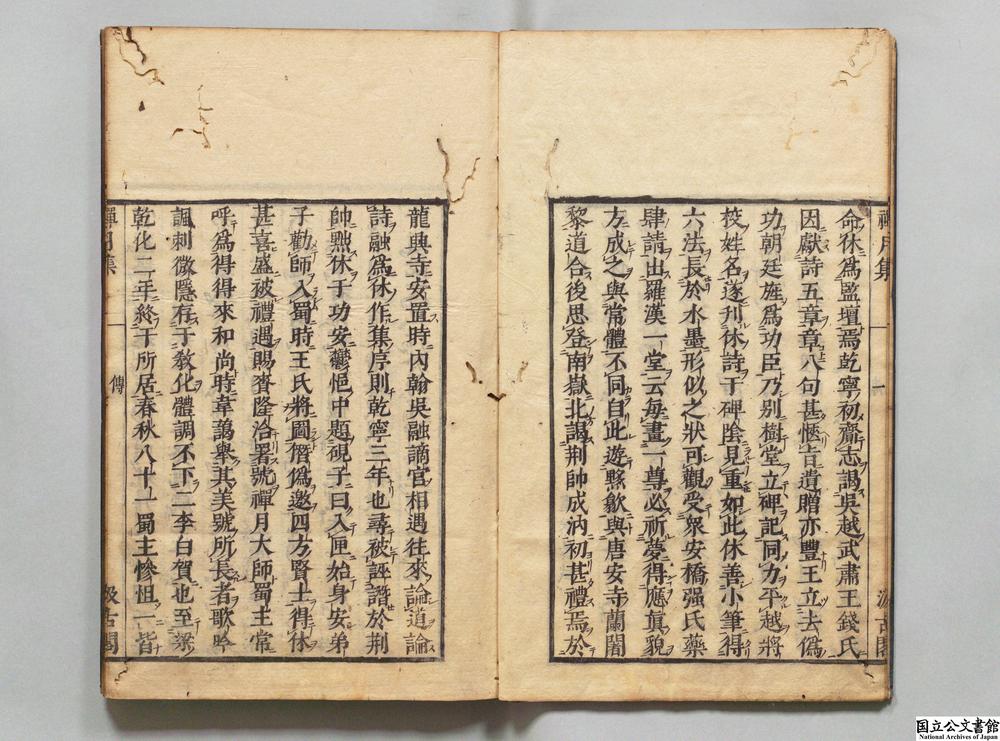 命休爲監壇焉乾寧初齎志謁吳越武肅王錢氏
因獻詩五章章八句甚愜旨遺贈亦豐王立去僞
功朝廷旌爲功臣乃别樹堂立碑記同力平越將
校姓名遂刊休詩于碑陰見重如此休善小筆得
六法長於水墨形似之狀可觀受衆安橋强氏藥
肆請出羅漢一堂云每畫一尊必祈夢得應眞貌
方成之與常體不同自此遊黟歙與唐安寺蘭闍
黎道合後思登南嶽北謁荆帥成汭初甚禮焉於
龍興寺安置時內翰吳融謫官相遇往來論道論
詩融爲休作集序則乾寧三年也尋被誣譖於荆
帥黜休于功安鬱悒中題硯子曰入匣始身安弟
子勸師入蜀時王氏將圖僭僞邀四方賢士得休
甚喜盛被禮遇賜賚隆洽署號禪月大師蜀主常
呼爲得得來和尚時韋藹舉其美號所長者歌吟
諷刺微隱存于敎化體調不下二李白賀也至梁
乾化二年終于所居春秋八十一蜀主慘怛一皆
禪月集
一
傳
汲古閣
国立公文書館
National Archives of Japan